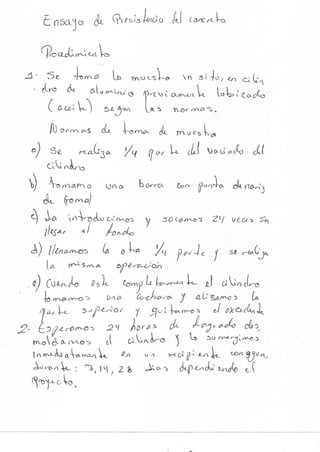 Ensayo de Resistencia del concreto
Procedimiento
1- Se toma la muestra in situ, en cilin
dro de aluminio previamente lubricado
(aceite) segun las normas.
Normas de toma de muestra
a) Se realiza 1/4 parte del vaciado del
cilindro
b) tomamo una barra con punta de nariz
de (toma)
c) la introducimos y sacamos 24 veces sin
llegar al fondo
d) llenamos la otra 1/4 parte y se realiza
la misma operación
e) Cuando este completamente el cilindro
tomamos una cuchara y alizamos la
parte superior y quitamos el excedente
2- Esperamos 24 horas de fraguado des
moldamos el cilindro y lo sumergimos
inmediatamente en un recipiente con agua,
durante: 7, 14, 28 dias dependiendo el
Proyecto.